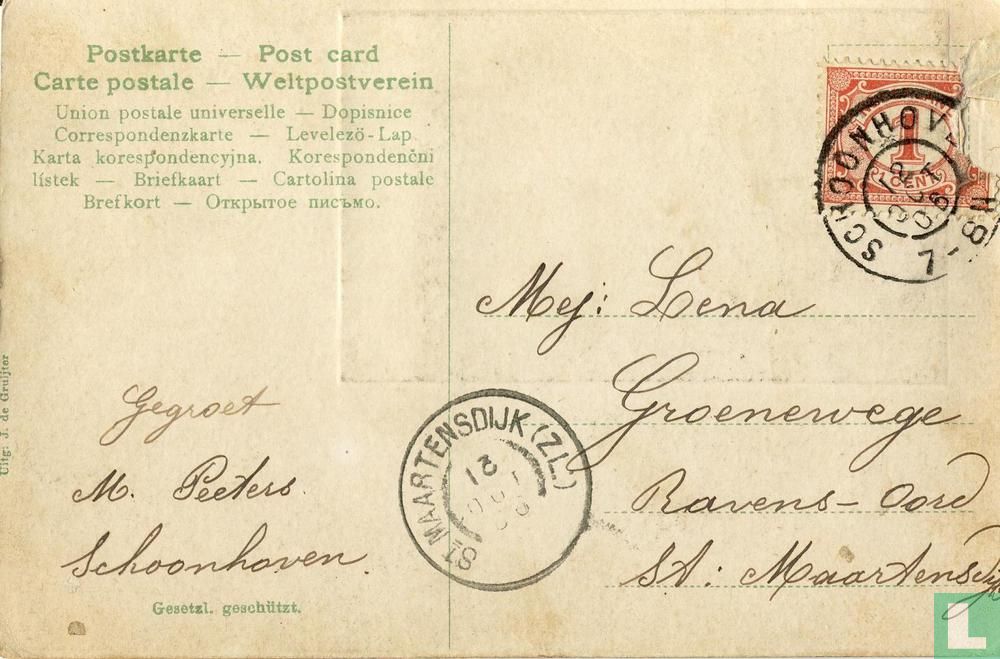 Postkarte — Post card
Carte postale — Weltpostverein
Union postale universelle — Dopisnice
Correspondenzkarte — Levelező-Lap
Karta korespondencyjna. Korespondenčni
lístek — Briefkaart — Cartolina postale
Brefkort — Открытое письмо.
Uitg: J. de Gruijter
Gegroet
M. Peeters.
Schoonhoven.
Gesetzl. geschützt.
ST MAARTENSDIJK (ZL.)
1
CENT
SCHOONHOV
7-8N
Mej: Lena
Groenewege
Ravens-Oord
St: Maartensdijk
L